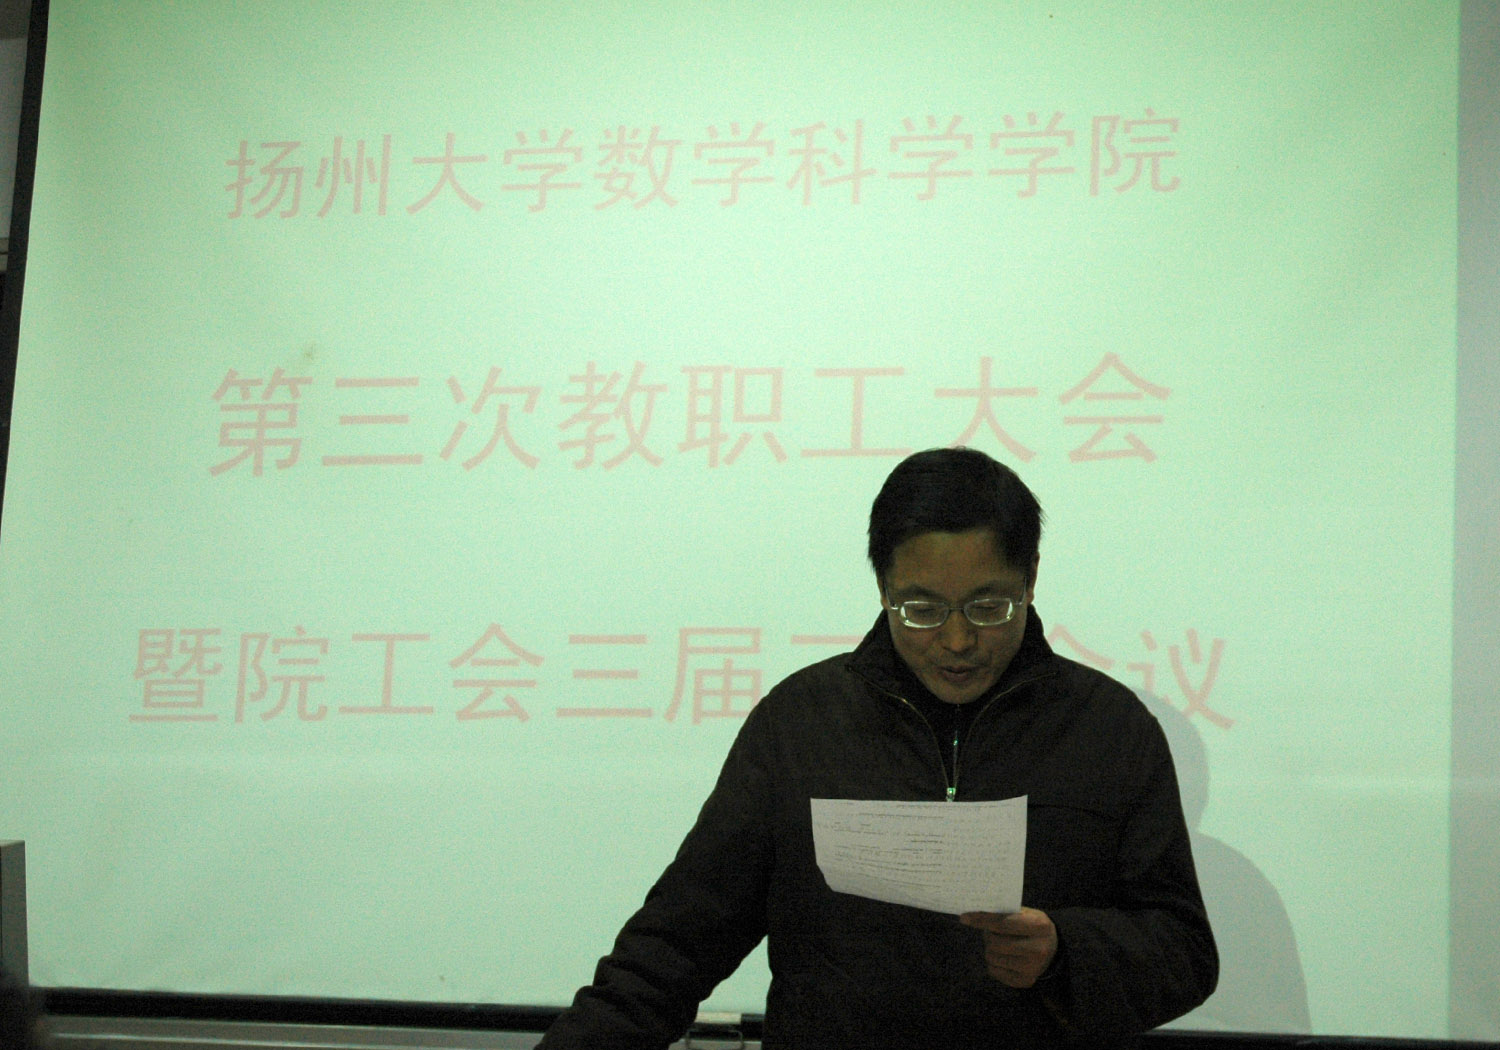 扬州大学数学科学学院
第三次教职工大会
暨院工会三届二次会议